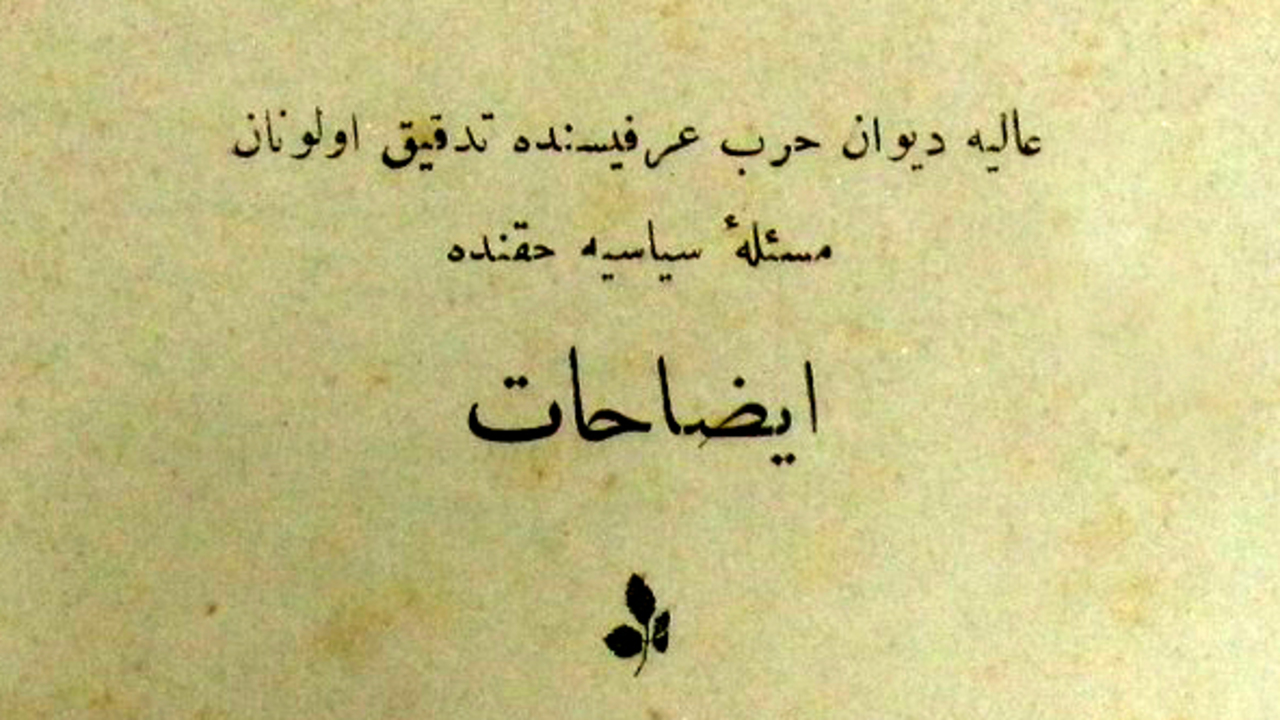 عاليه ديوان حرب عرفيسنده تدقيق اولونان
مسئلهٔ سياسيه حقنده
ايضاحات